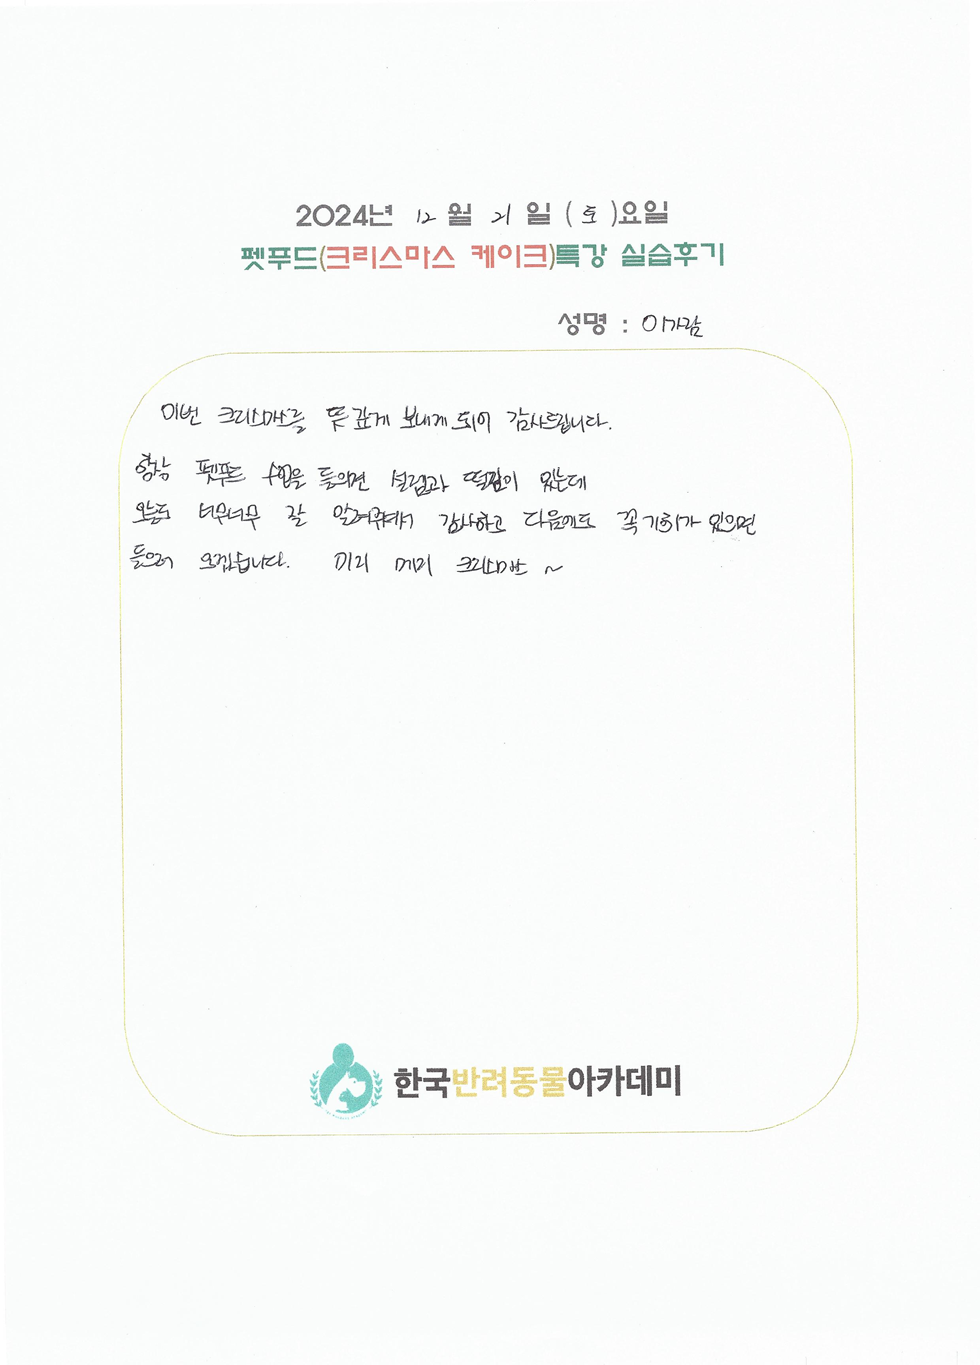 2024년 12월 21일 (토)요일
펫푸드(크리스마스 케이크)특강 실습후기
성명 : 이가람
이번 크리스마스를 뜻 깊게 보내게 되어 감사드립니다.
항상 펫푸드 수업을 들으면 설렘과 떨림이 있는데
오늘도 너무너무 잘 알려주셔서 감사하고 다음에도 꼭 기회가 있으면
들으러 오겠습니다. 미리 메리 크리스마스 ~
한국반려동물아카데미